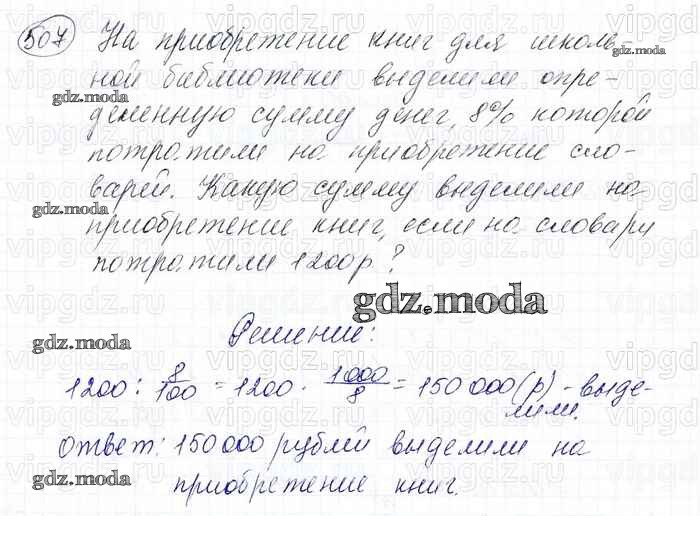 507 На приобретение книг для школь-
ной библиотеки выделили опре-
деленную сумму денег, 8% которой
gdz.moda
потратили на приобретение сло-
варей. Какую сумму выделили на
gdz.moda
приобретение книг, если на словари
потратили 1200р?
gdz.moda
Решение:
gdz.moda
1200 : 8/100 = 1200 · 1000/8 = 150 000 (р) - выде-
лили.
Ответ: 150 000 рублей выделили на
gdz.moda
приобретение книг.
vipgdz.ru